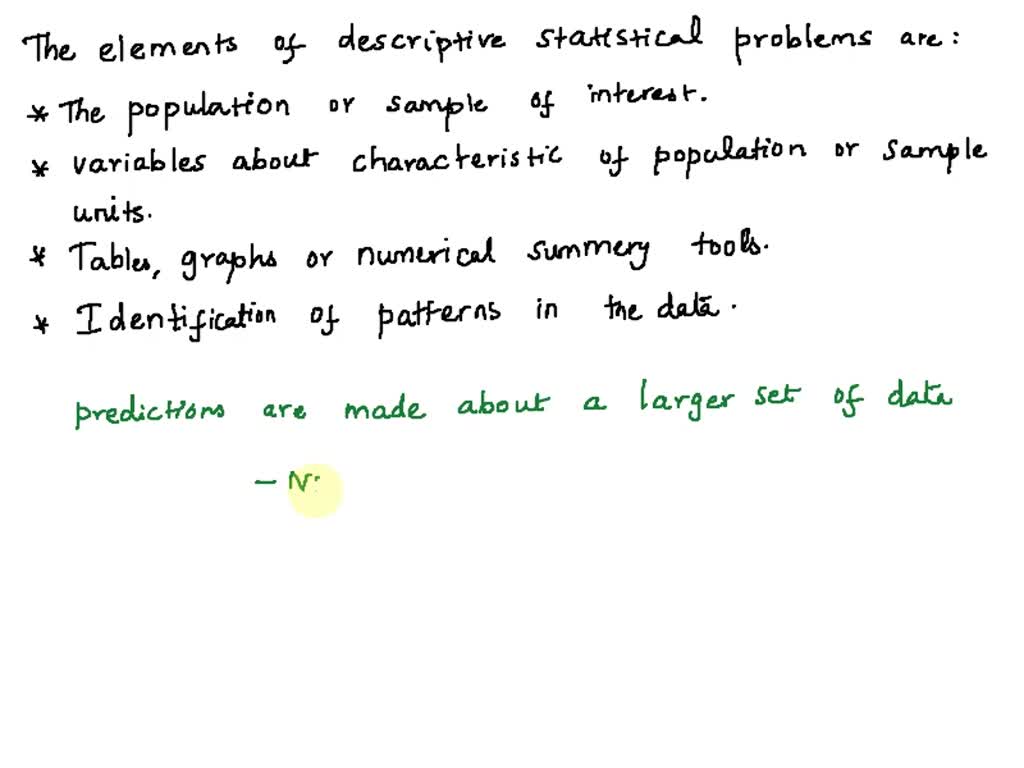 The elements of descriptive statistical problems are:
* The population or sample of interest.
* variables about characteristic of population or sample
units.
* Tables, graphs or numerical summery tools.
* Identification of patterns in the data.
predictions are made about a larger set of data
- N